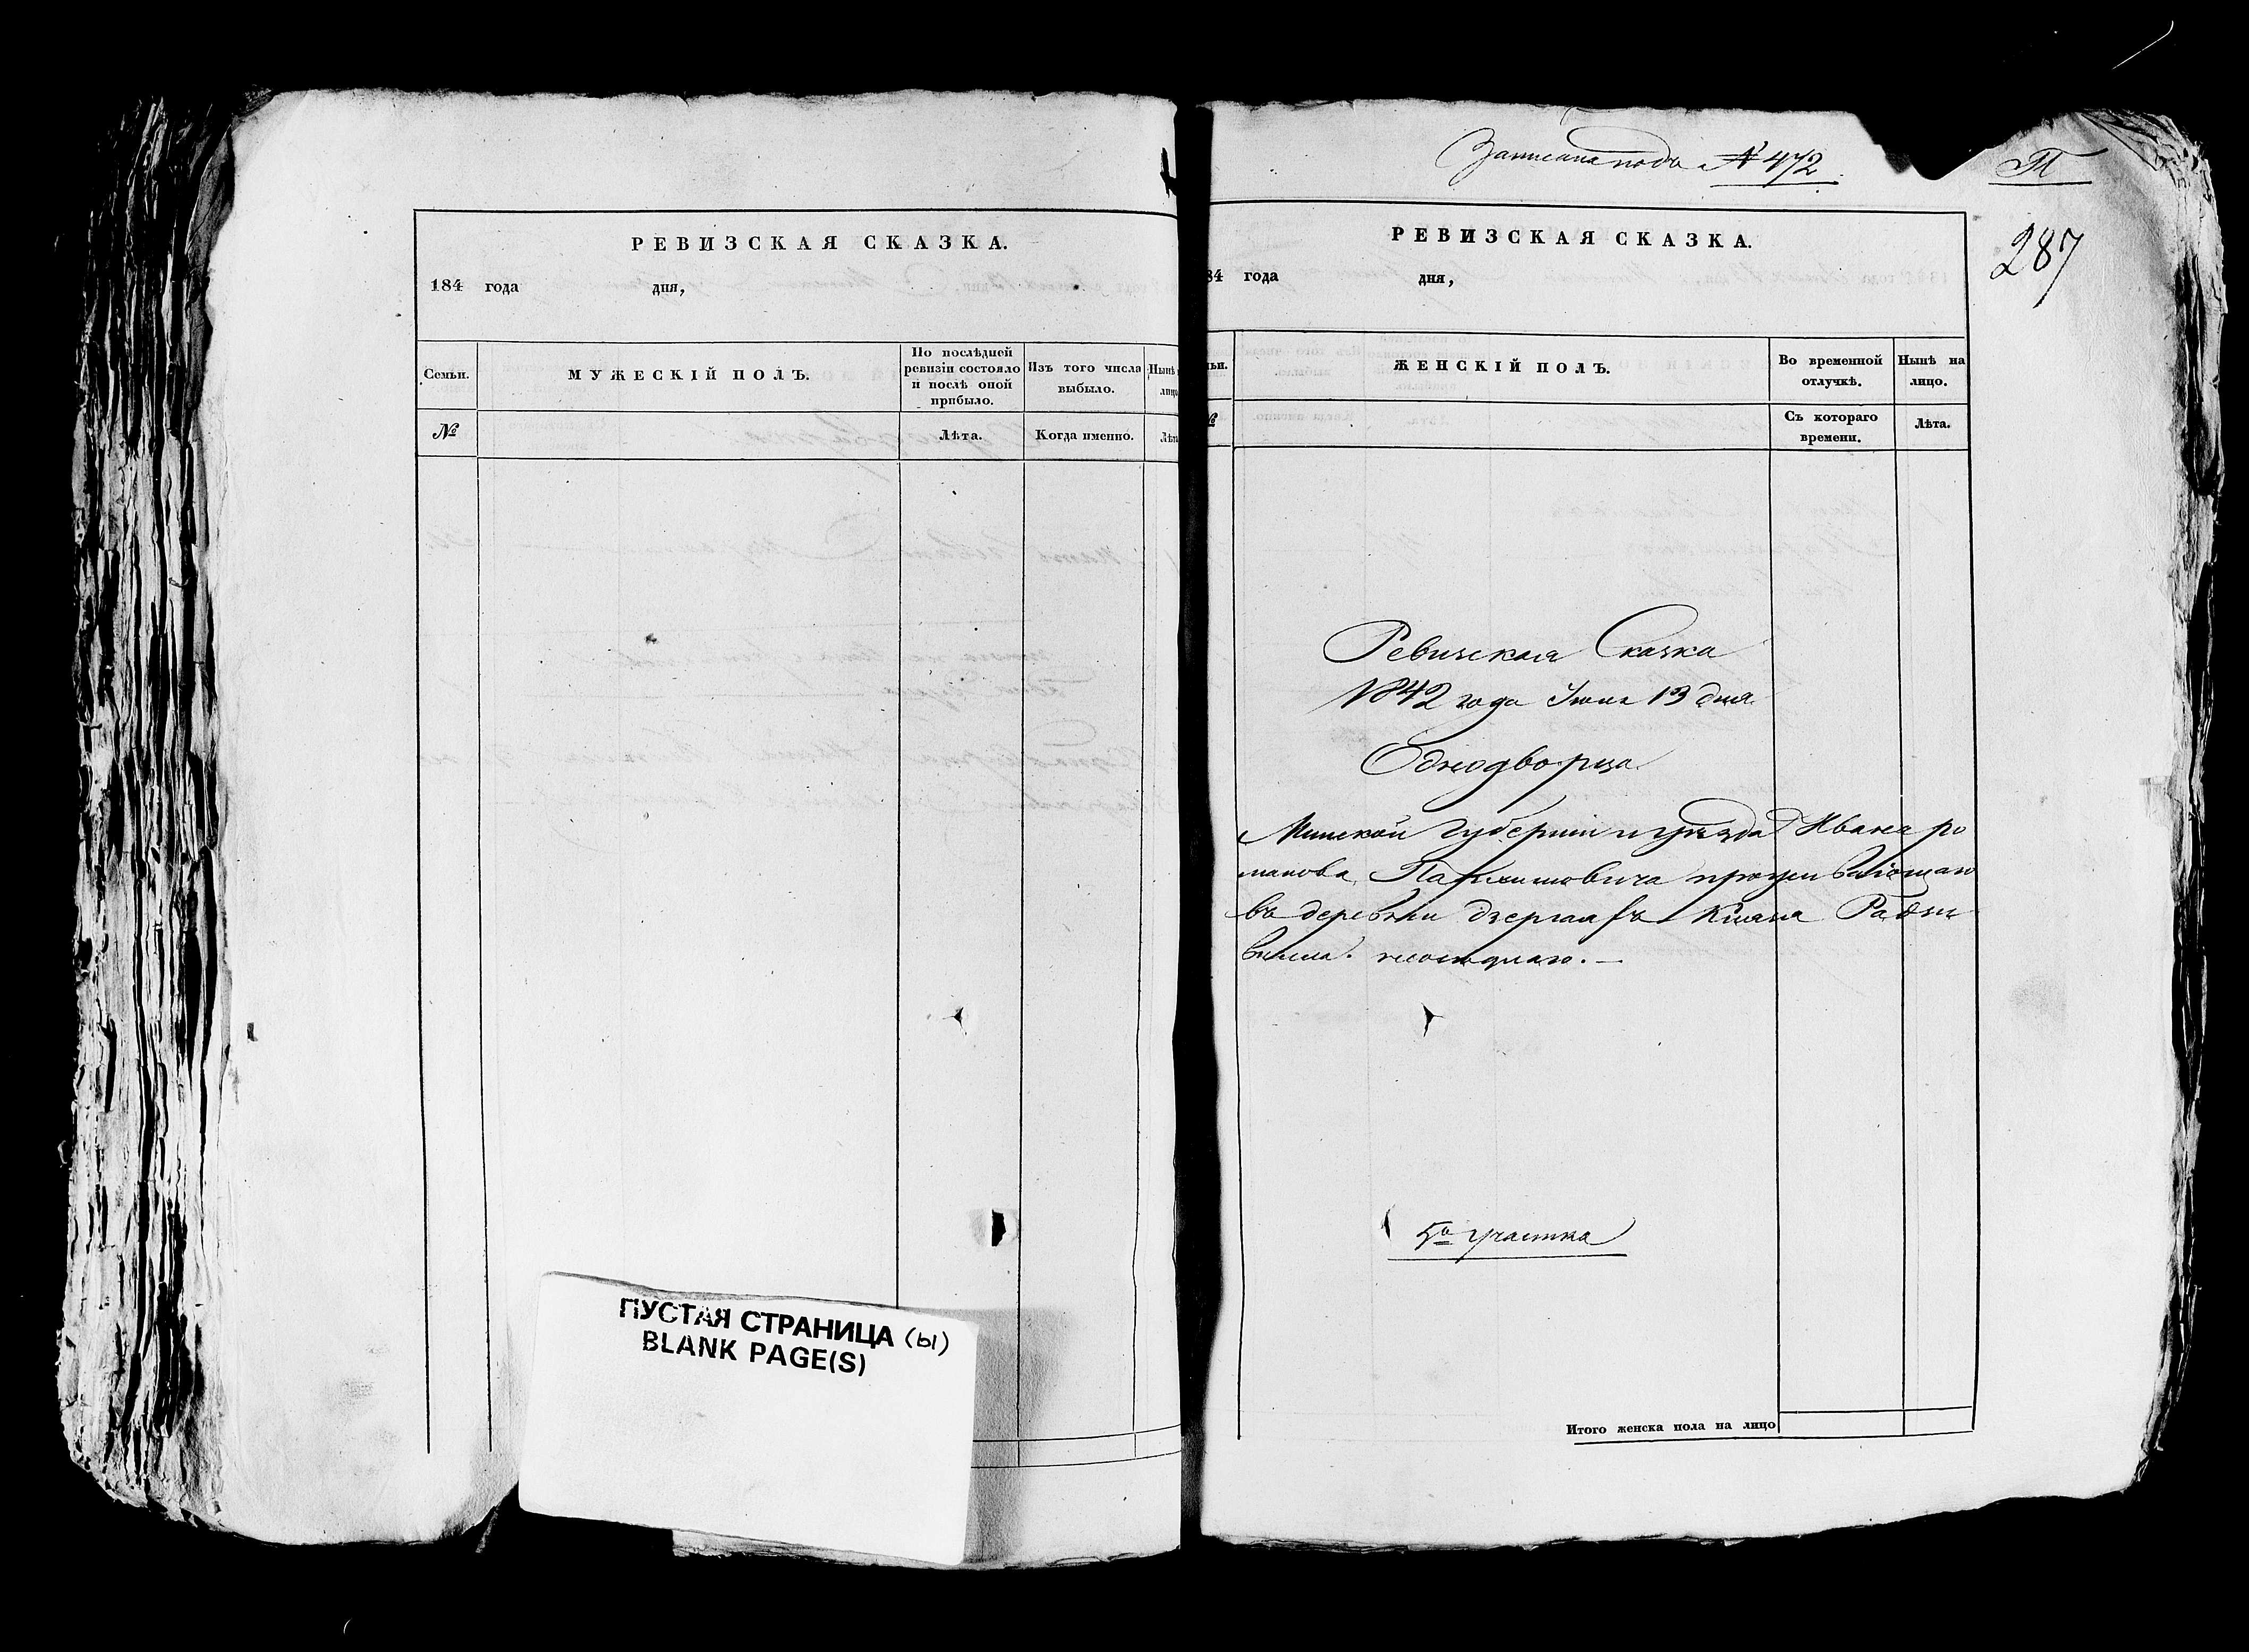 РЕВИЗСКАЯ СКАЗКА.
184 года дня,
Семьи.
МУЖЕСКІЙ ПОЛЪ.
По послѣдней ревизіи состояло и послѣ оной прибыло.
Изъ того числа выбыло.
Нынѣ
лицо
№
Лѣта.
Когда именно.
Лѣт
ПУСТАЯ СТРАНИЦА (ы)
BLANK PAGE(S)
Записана подъ № 472
П
287
РЕВИЗСКАЯ СКАЗКА.
84 года дня,
ьи.
ЖЕНСКІЙ ПОЛЪ.
Во временной отлучкѣ.
Нынѣ на лицо.
№
Съ котораго времени.
Лѣта.
Ревизская Сказка
1842 года Іюня 13 дня
Однодворца
Минской Губерніи и уѣзда Ивана Ро
манова Пархимовича проживающаго
въ деревни Князя Радзи
вилла.
5го участка
Итого женска пола на лицо